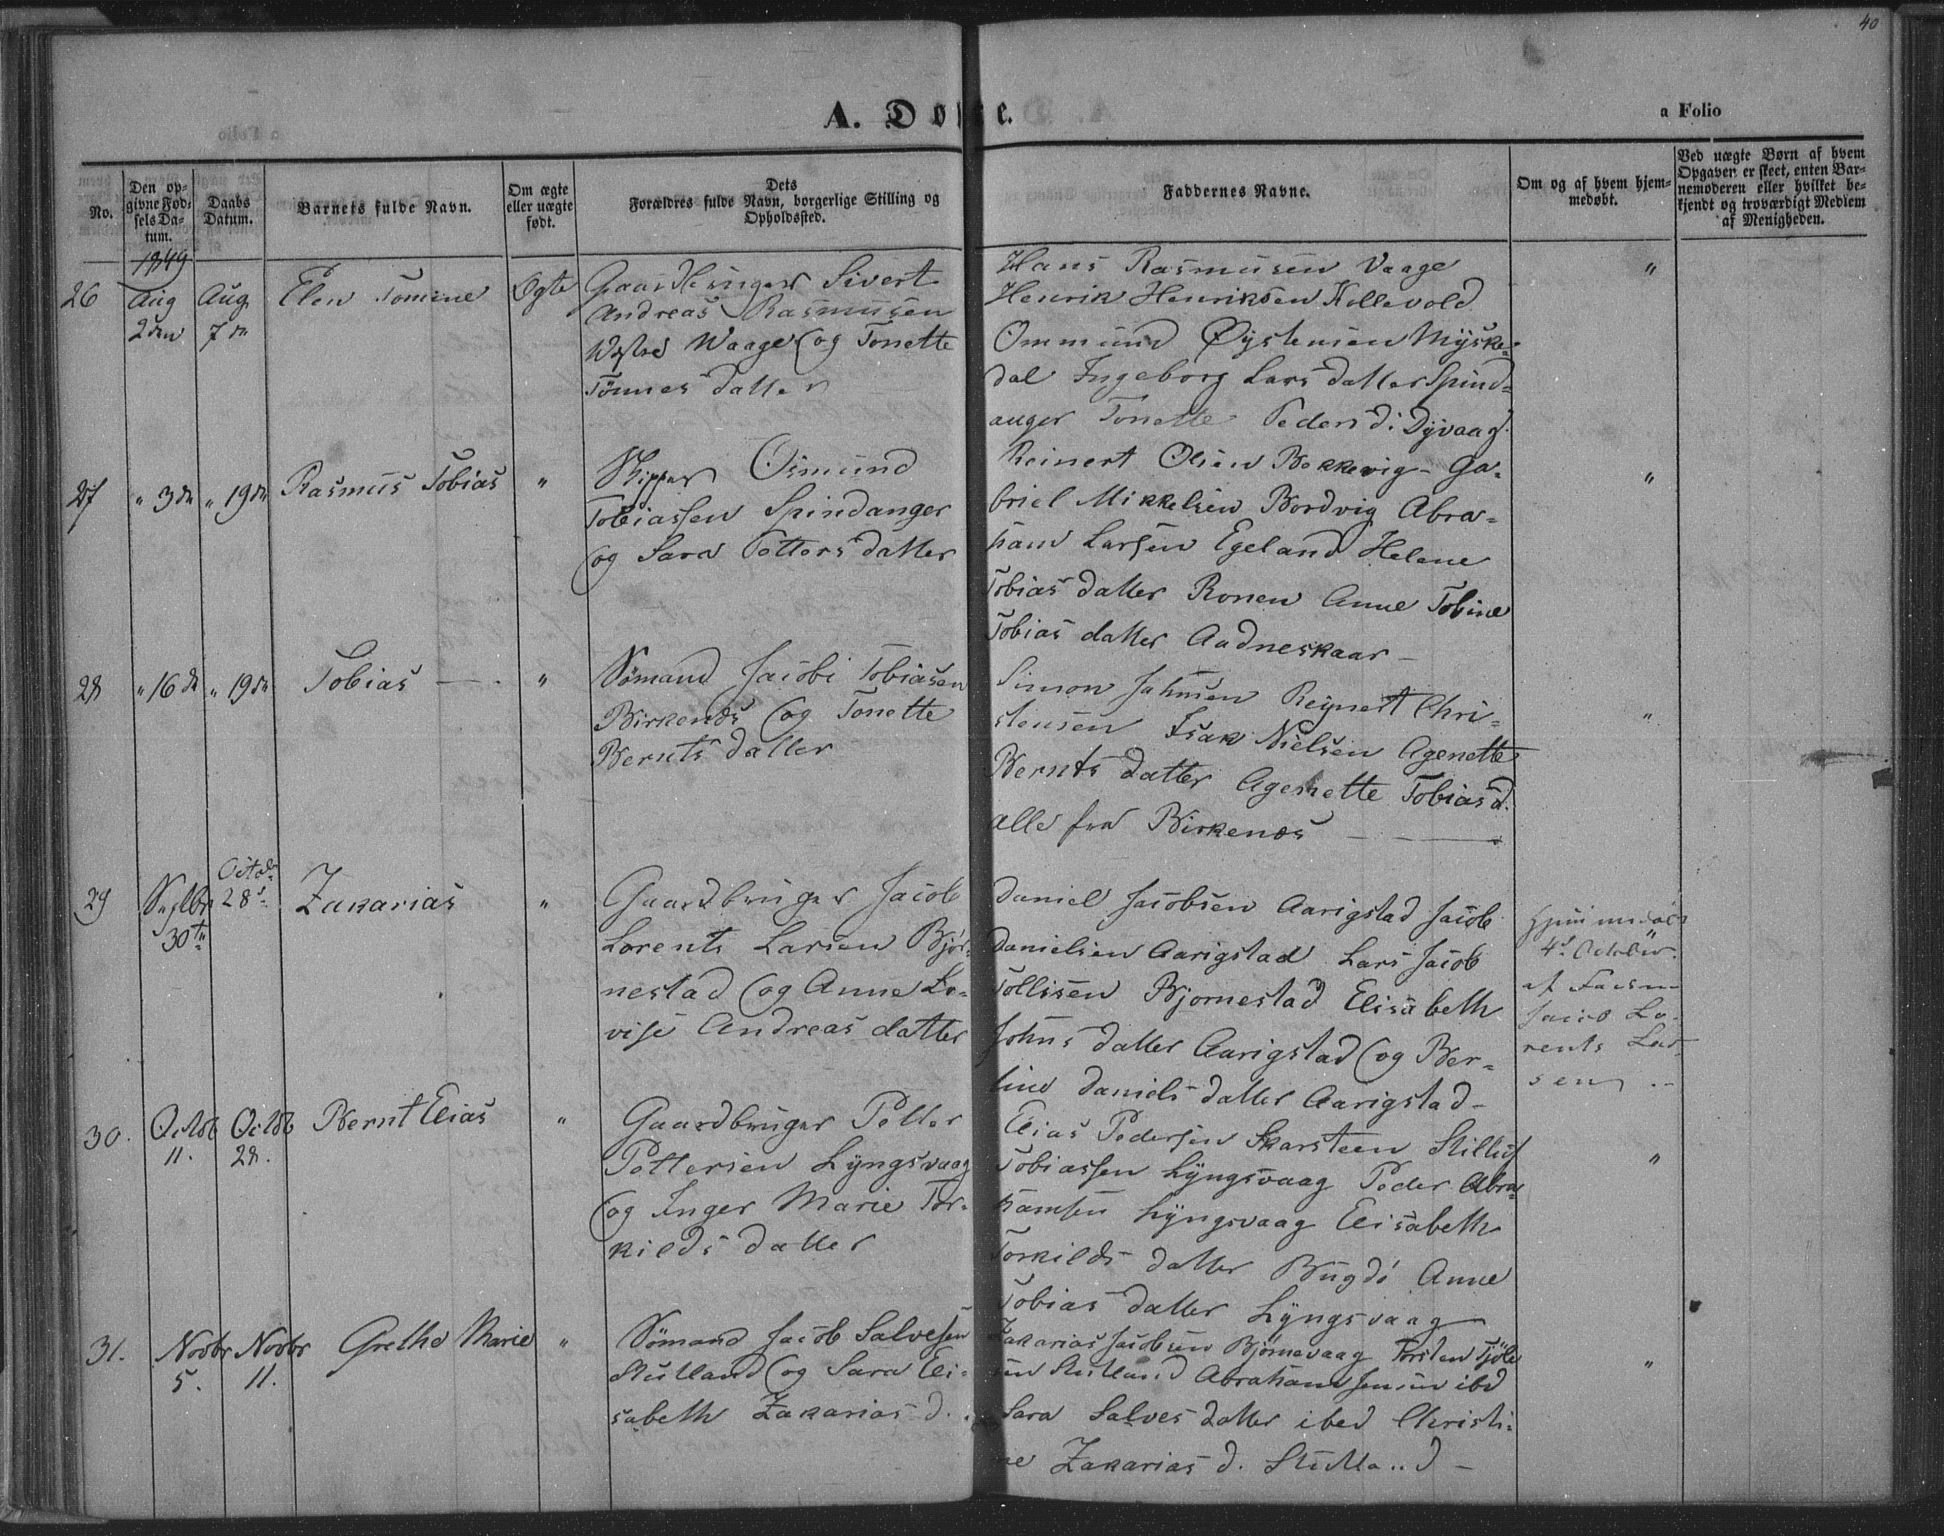 40
A. Døbte.
a Folio
No.
Den op-
givne Fød-
sels Da-
tum.
Daabs
Datum.
Barnets fulde Navn.
Om ægte
eller uægte
født.
Dets
Forældres fulde Navn, borgerlige Stilling og
Opholdssted.
Faddernes Navne.
Om og af hvem hjem-
medøbt.
Ved uægte Børn af hvem
Opgaven er skeet, enten Bar-
nemoderen eller hvilket be-
kjendt og troværdigt Medlem
af Menigheden.
1849
26
Aug
2den
Aug.
7de
Elen Tomine
Ægte
Gaardbruger Sivert
Andreas Rasmusen
Vestre Waage og Tonette
Tönnes datter
Hans Rasmusen Vaage
Henrik Henriksen Kollevold
Ommund Øystensen Myske-
dal Ingeborg Lars datter Spind-
anger Tonette Peders d: Dyvaag.
"
27
" 3de
" 19de
Rasmus Tobias
"
Skipper Osmund
Tobiassen Spindanger
og Sara Petters datter
Reinert Olsen Bekkevig - Ga-
briel Mikkelsen Bordvig Abra-
ham Larsen Egeland Helene
Tobias datter Ronen Anne Tobine
Tobias datter Aadneskaar -
"
28
" 16de
" 19de
Tobias
"
Sömand Jacobi Tobiasen
Birkenæs og Tonette
Bernts datter
Simon Johnsen Reynert Chri-
stensen Isak Nielsen Agenette
Bernts datter Agenette Tobias d.
alle fra Birkenæs
"
29
Septbr
30te
Octob.
28.
Zakarias
"
Gaardbruger Jacob
Lorents Larsen Björ-
nestad og Anne Lo-
vise Andreas datter
Daniel Jacobsen Aarigstad Jacob
Danielsen Aarigstad Lars Jacob
Tollisen Bjornestad Elisabeth
Johns datter Aarigstad og Ber-
tine Daniels datter Aarigstad -
Hjemmedöbt
4. October
af Faderen
Jacob Lo-
rents Lar-
sen
30.
Octob
11.
Octob
28.
Bernt Elias
"
Gaardbruger Petter
Pettersen Lyngsvaag
og Inger Marie Tor-
kilds datter
Elias Pedersen Skarsteen Stilluf
Tobiassen Lyngsvaag Peder Abra-
hamsen Lyngsvaag Elisabeth
Torkilds datter Bugdö Anne
Tobias datter Lyngsvaag
"
31.
Novbr
5.
Novbr
11.
Grethe Marie
"
Sömand Jacob Salvesen
Stulland og Sara Eli-
sabeth Zakarias d.
Zakarias Jacobsen Björnevaag Torsten
Stulland Abraham Jensen ibd
Sara Salves datter ibed Christi-
ne Zakarias d. Stulland -
"